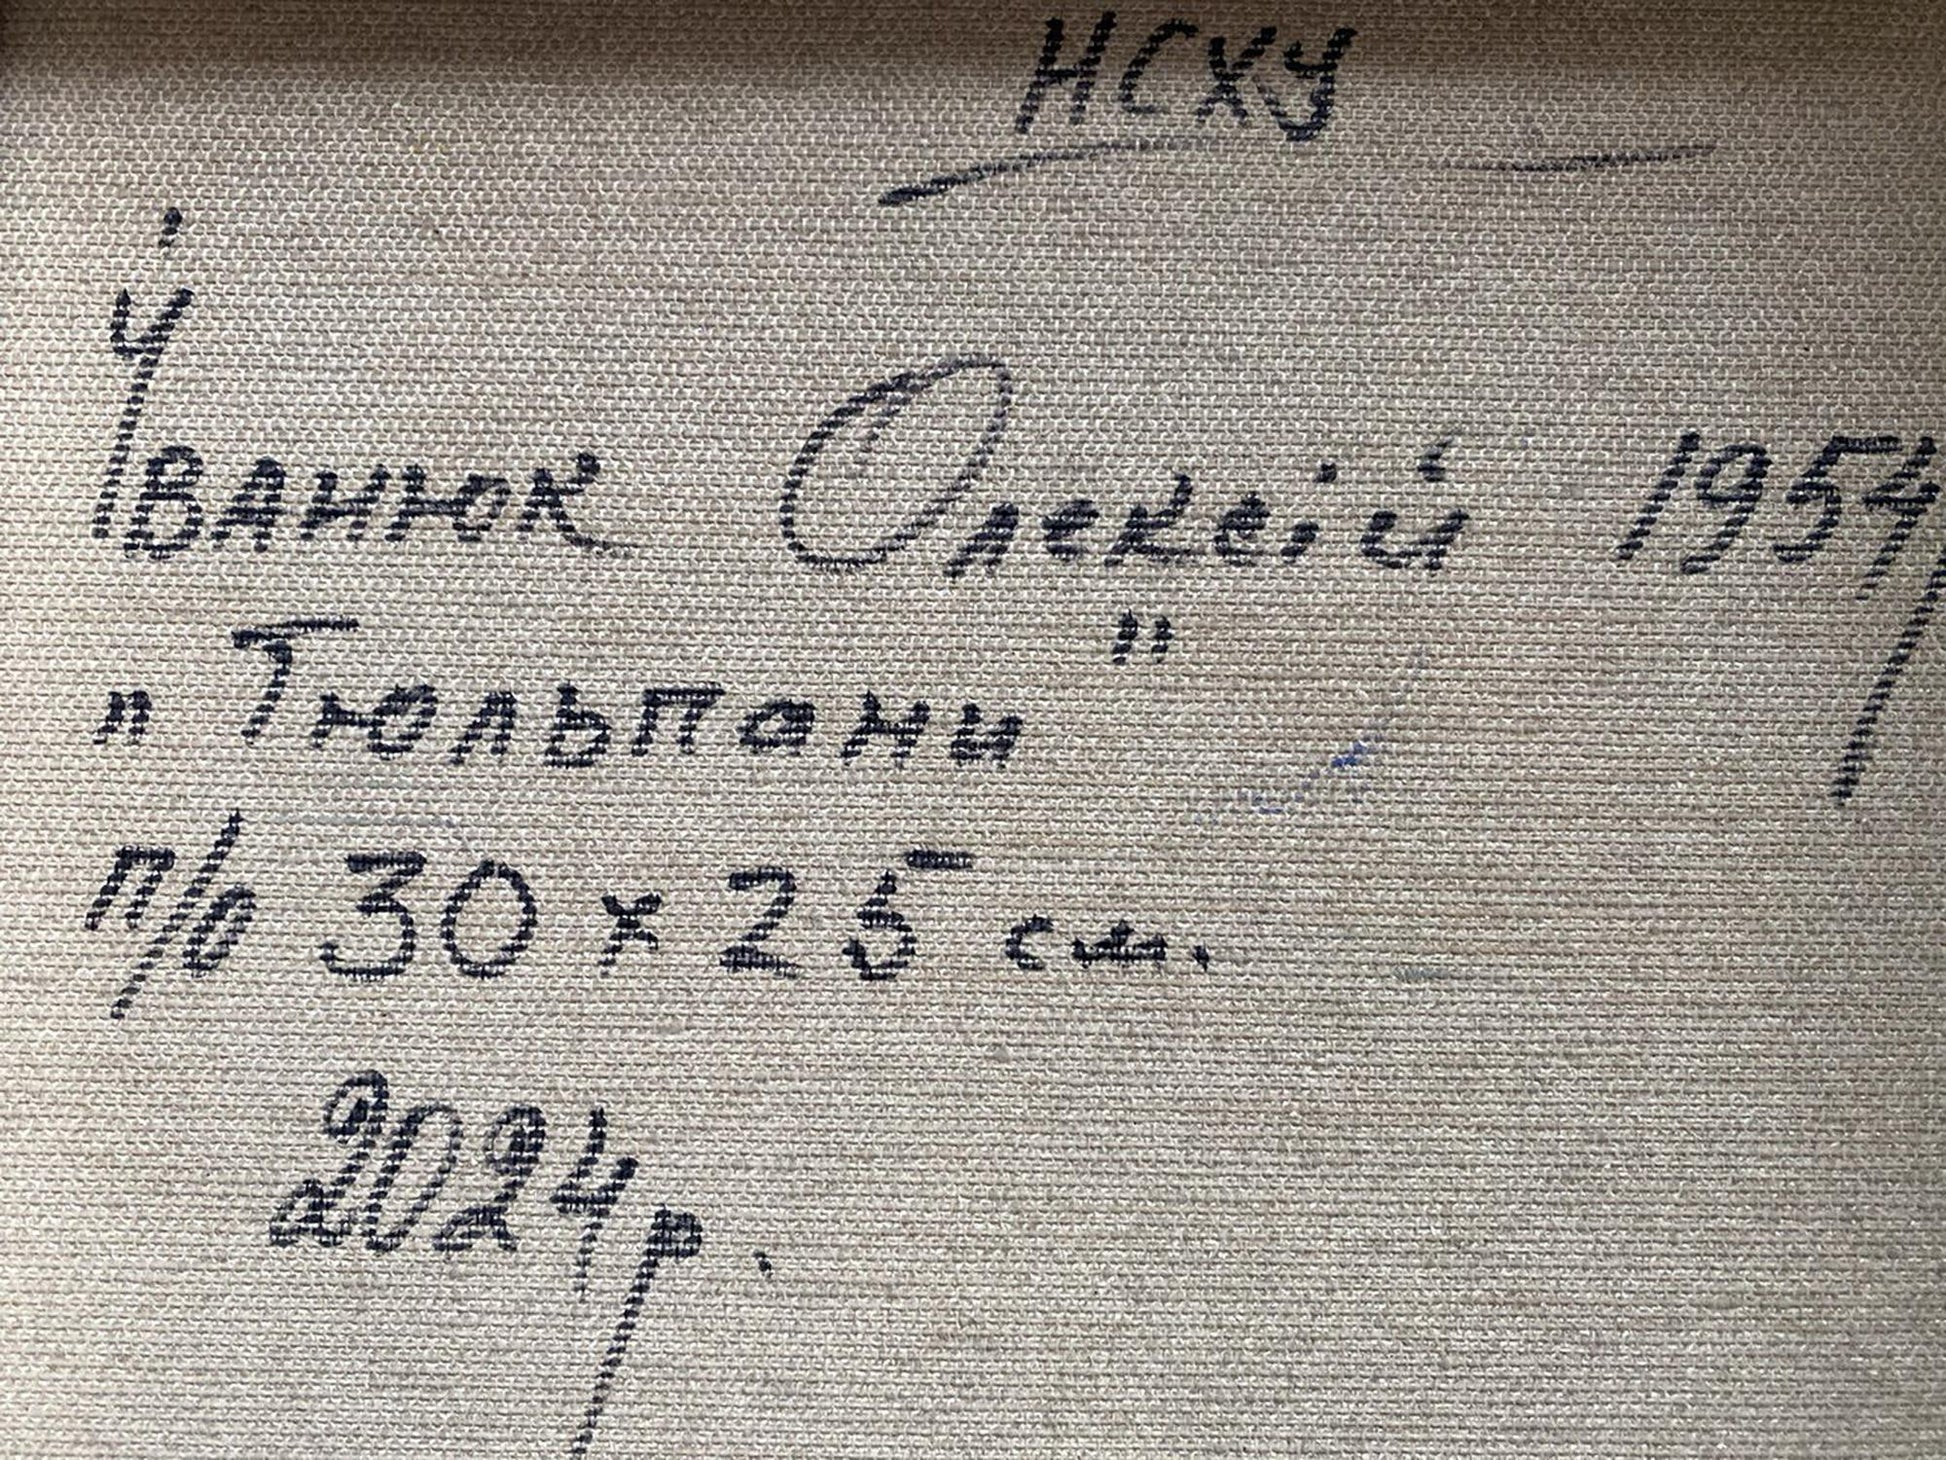 НСХУ
Іванюк Олексій 1954р
„Тюльпани"
п/о 30 х 25 см.
2024р.